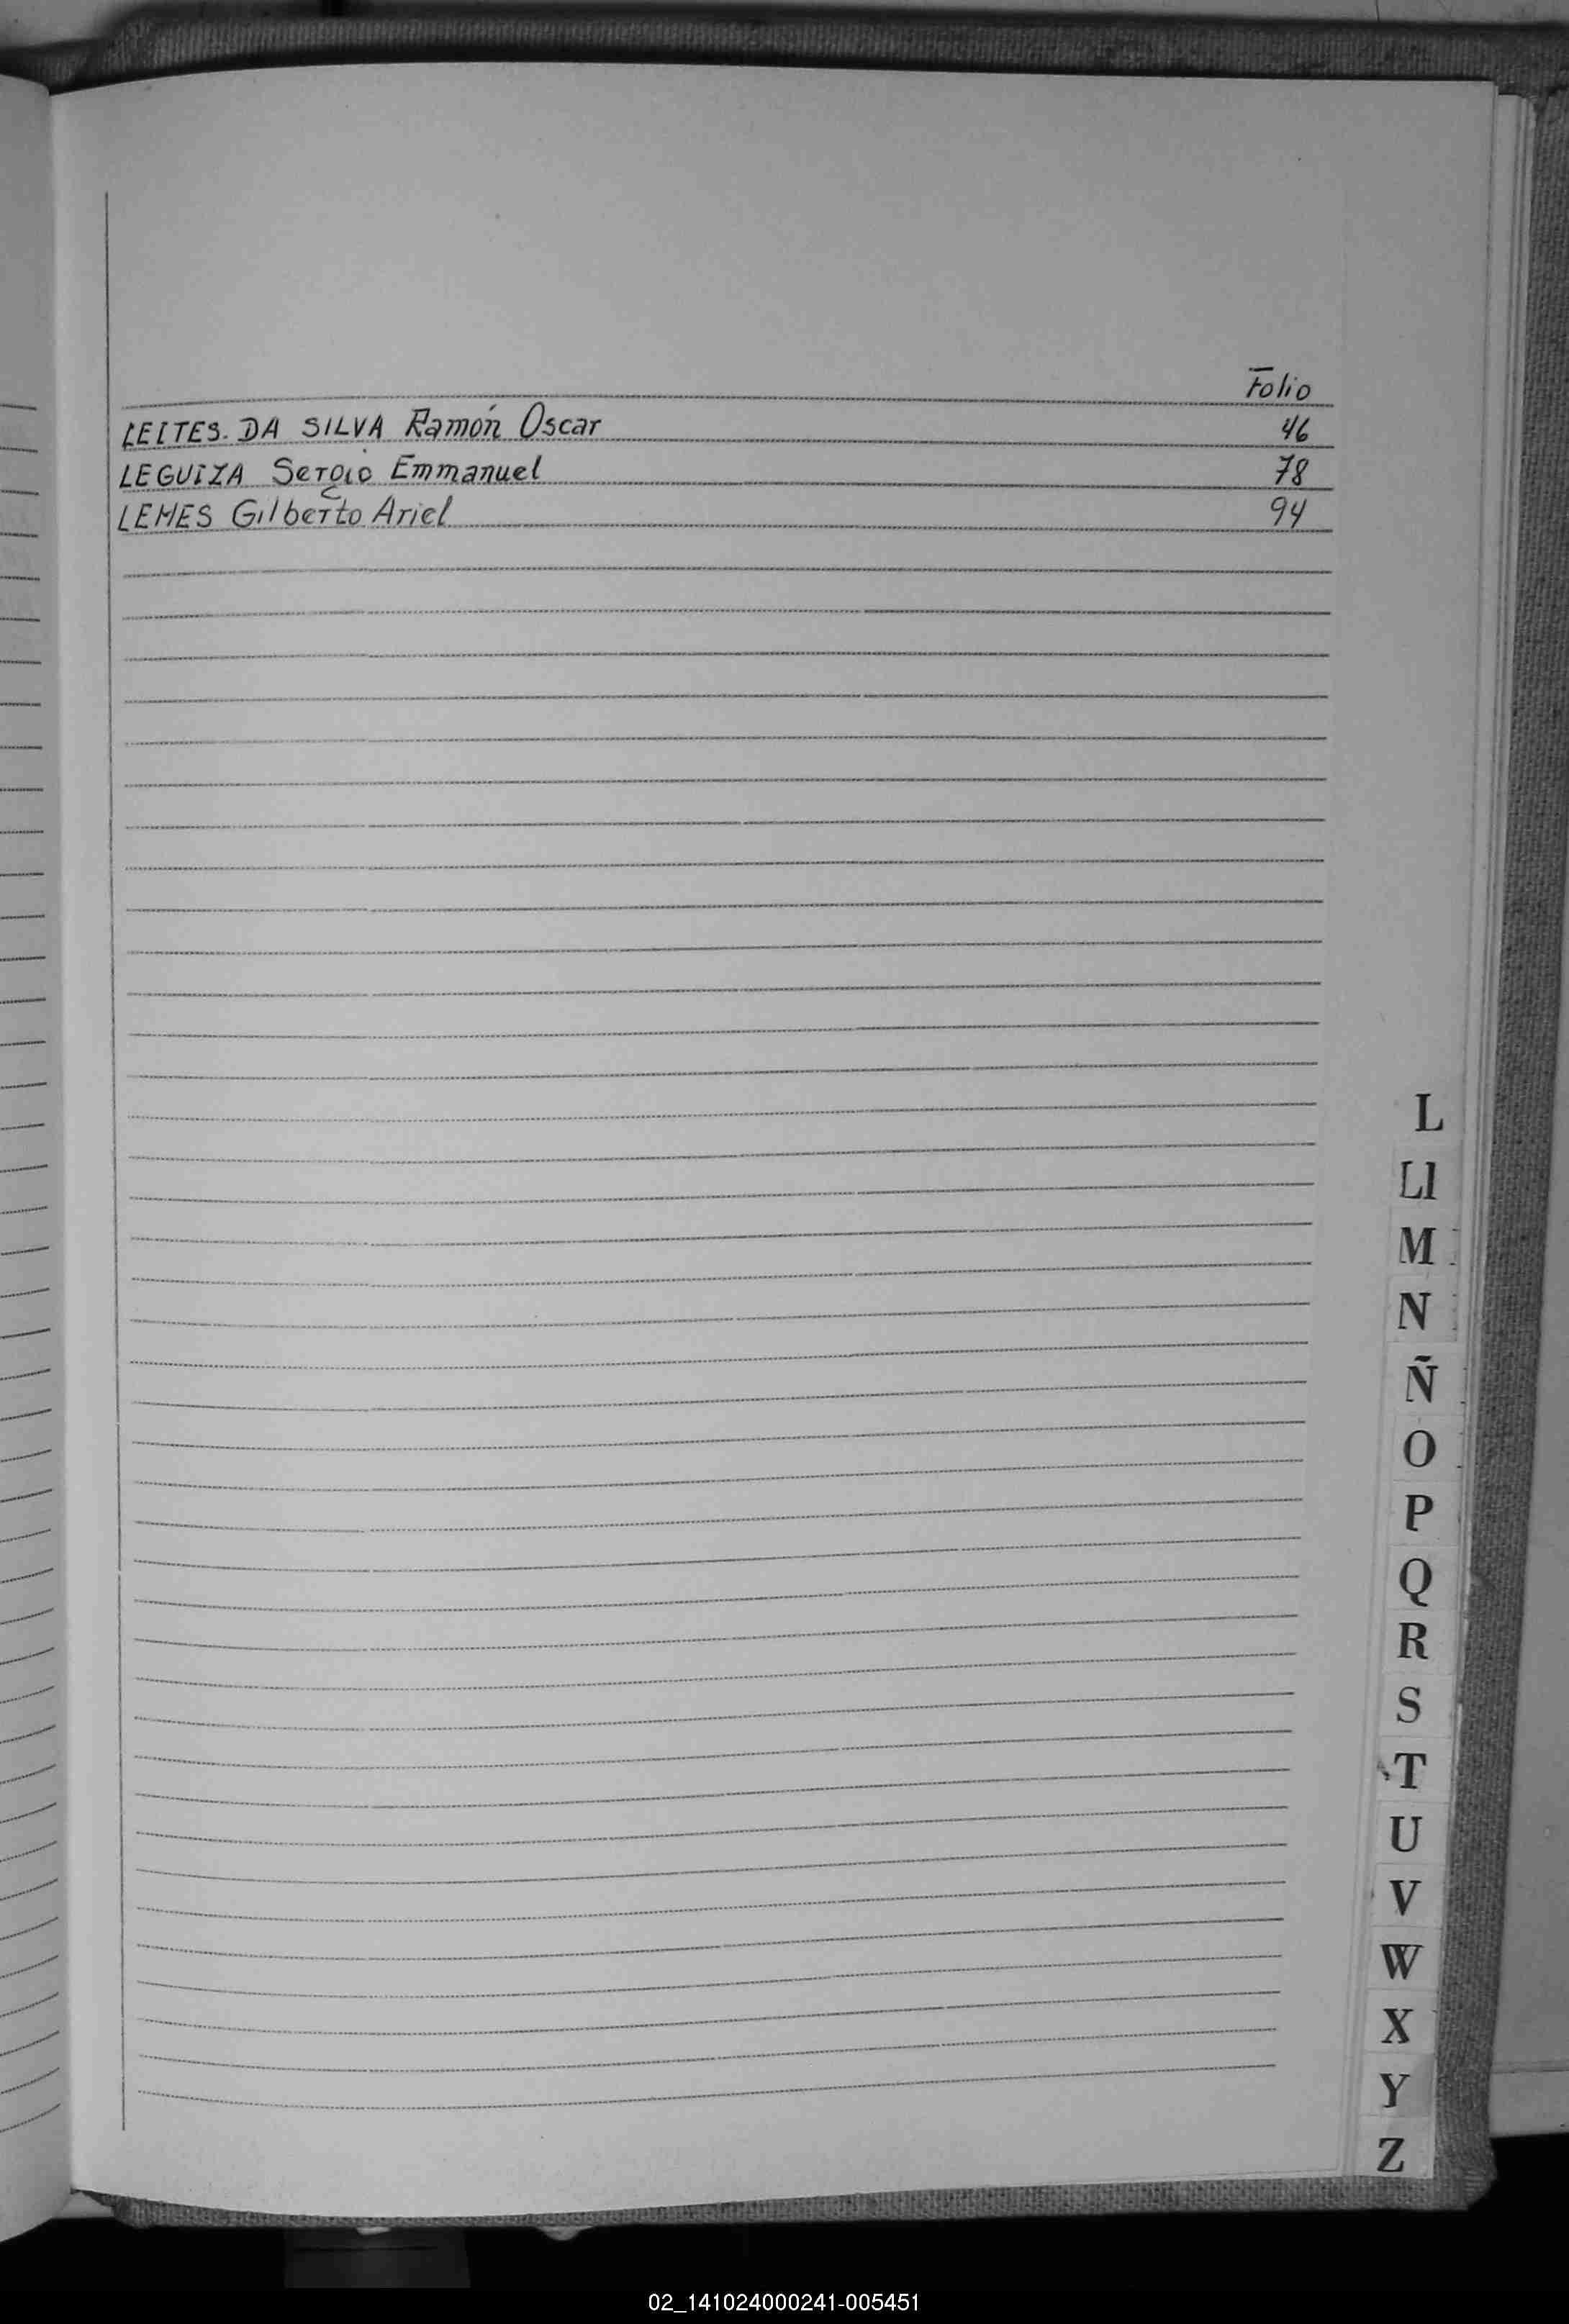 Folio
LEITES. DA SILVA Ramón Oscar 46
LEGUIZA Sergio Emmanuel 78
LEMES Gilberto Ariel 94
L
Ll
M
N
Ñ
O
P
Q
R
S
T
U
V
W
X
Y
Z
02_141024000241-005451